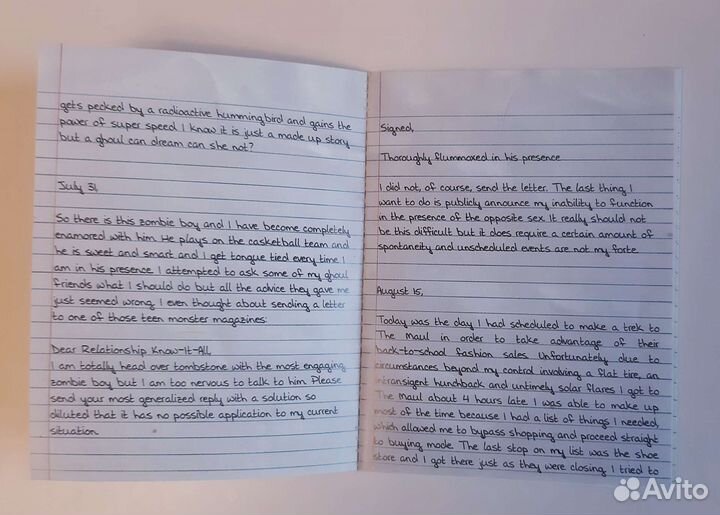 gets pecked by a radioactive hummingbird and gains the
power of super speed I know it is just a made up story,
but a ghoul can dream can she not?
July 31,
So there is this zombie boy and I have become completely
enamored with him. He plays on the casketball team and
he is sweet and smart and I get tongue tied every time I
am in his presence I attempted to ask some of my ghoul
friends what I should do but all the advice they gave me
just seemed wrong. I even thought about sending a letter
to one of those teen monster magazines:
Dear Relationship Know-It-All,
I am totally head over tombstone with the most engaging
zombie boy but I am too nervous to talk to him. Please
send your most generalized reply with a solution so
diluted that it has no possible application to my current
situation.
Signed,
Thoroughly flummoxed in his presence
I did not, of course, send the letter. The last thing I
want to do is publicly announce my inability to function
in the presence of the opposite sex. It really should not
be this difficult but it does require a certain amount of
spontaneity and unscheduled events are not my forte.
August 15,
Today was the day I had scheduled to make a trek to
The Maul in order to take advantage of their
back-to-school fashion sales. Unfortunately due to
circumstances beyond my control involving a flat tire, an
intransigent hunchback and untimely solar flares I got to
The Maul about 4 hours late I was able to make up
most of the time because I had a list of things I needed,
which allowed me to bypass shopping and proceed straight
to buying mode. The last stop on my list was the shoe
store and I got there just as they were closing. I tried to
Avito